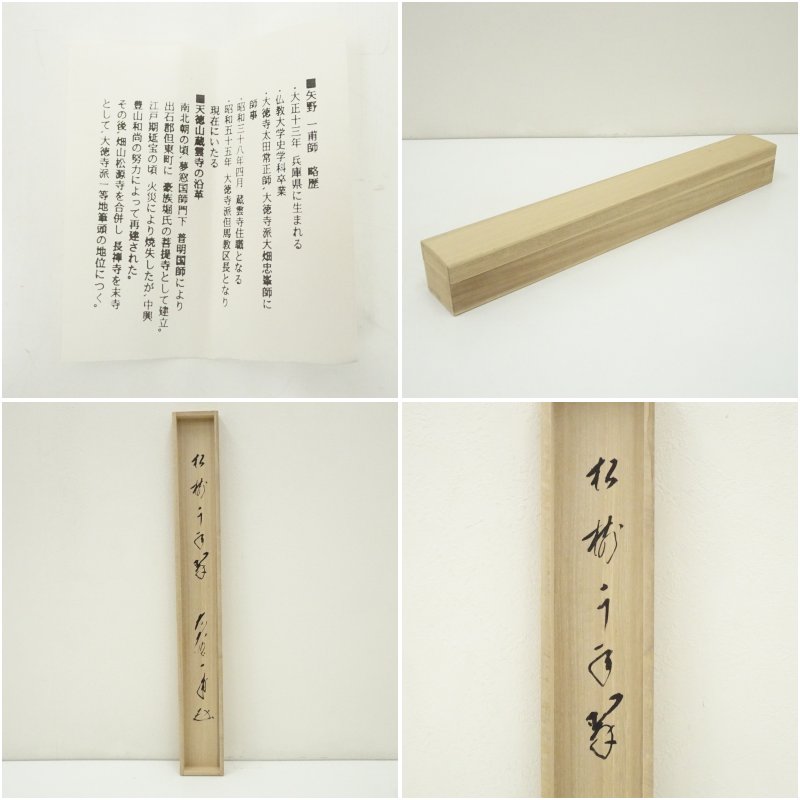 ■矢野一甫師 略歴
・大正十三年 兵庫県に生まれる
・仏教大学史学科卒業
・大徳寺太田常正師・大徳寺派大畑忠峯師に
師事
・昭和三十八年四月 蔵雲寺住職となる
・昭和五十五年 大徳寺派但馬教区長となり
現在にいたる
■天徳山蔵雲寺の沿革
南北朝の頃、夢窓国師門下 普明国師により
出石郡但東町に 豪族堀氏の菩提寺として建立。
江戸期延宝の頃 火災により焼失したが、中興
豊山和尚の努力によって再建された。
その後、畑山松源寺を合併し 長禅寺を末寺
として、大徳寺派一等地筆頭の地位につく。
松樹千年翠
松樹千年翠